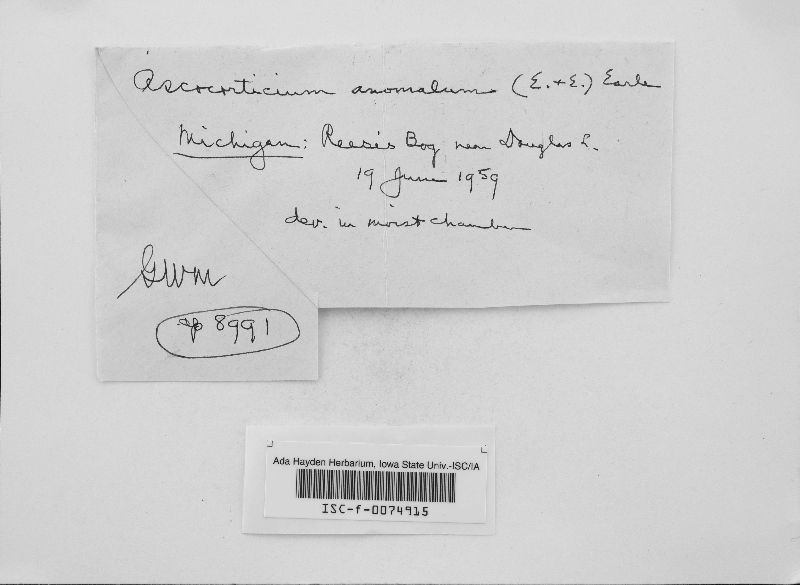 Ascocorticium anomalum (E. & E.) Earle
Michigan: Reese's Bog near Douglas L.
19 June 1959
dev. in moist chamber
GWM
8991
Ada Hayden Herbarium, Iowa State Univ.-ISC/IA
ISC-f-0074915